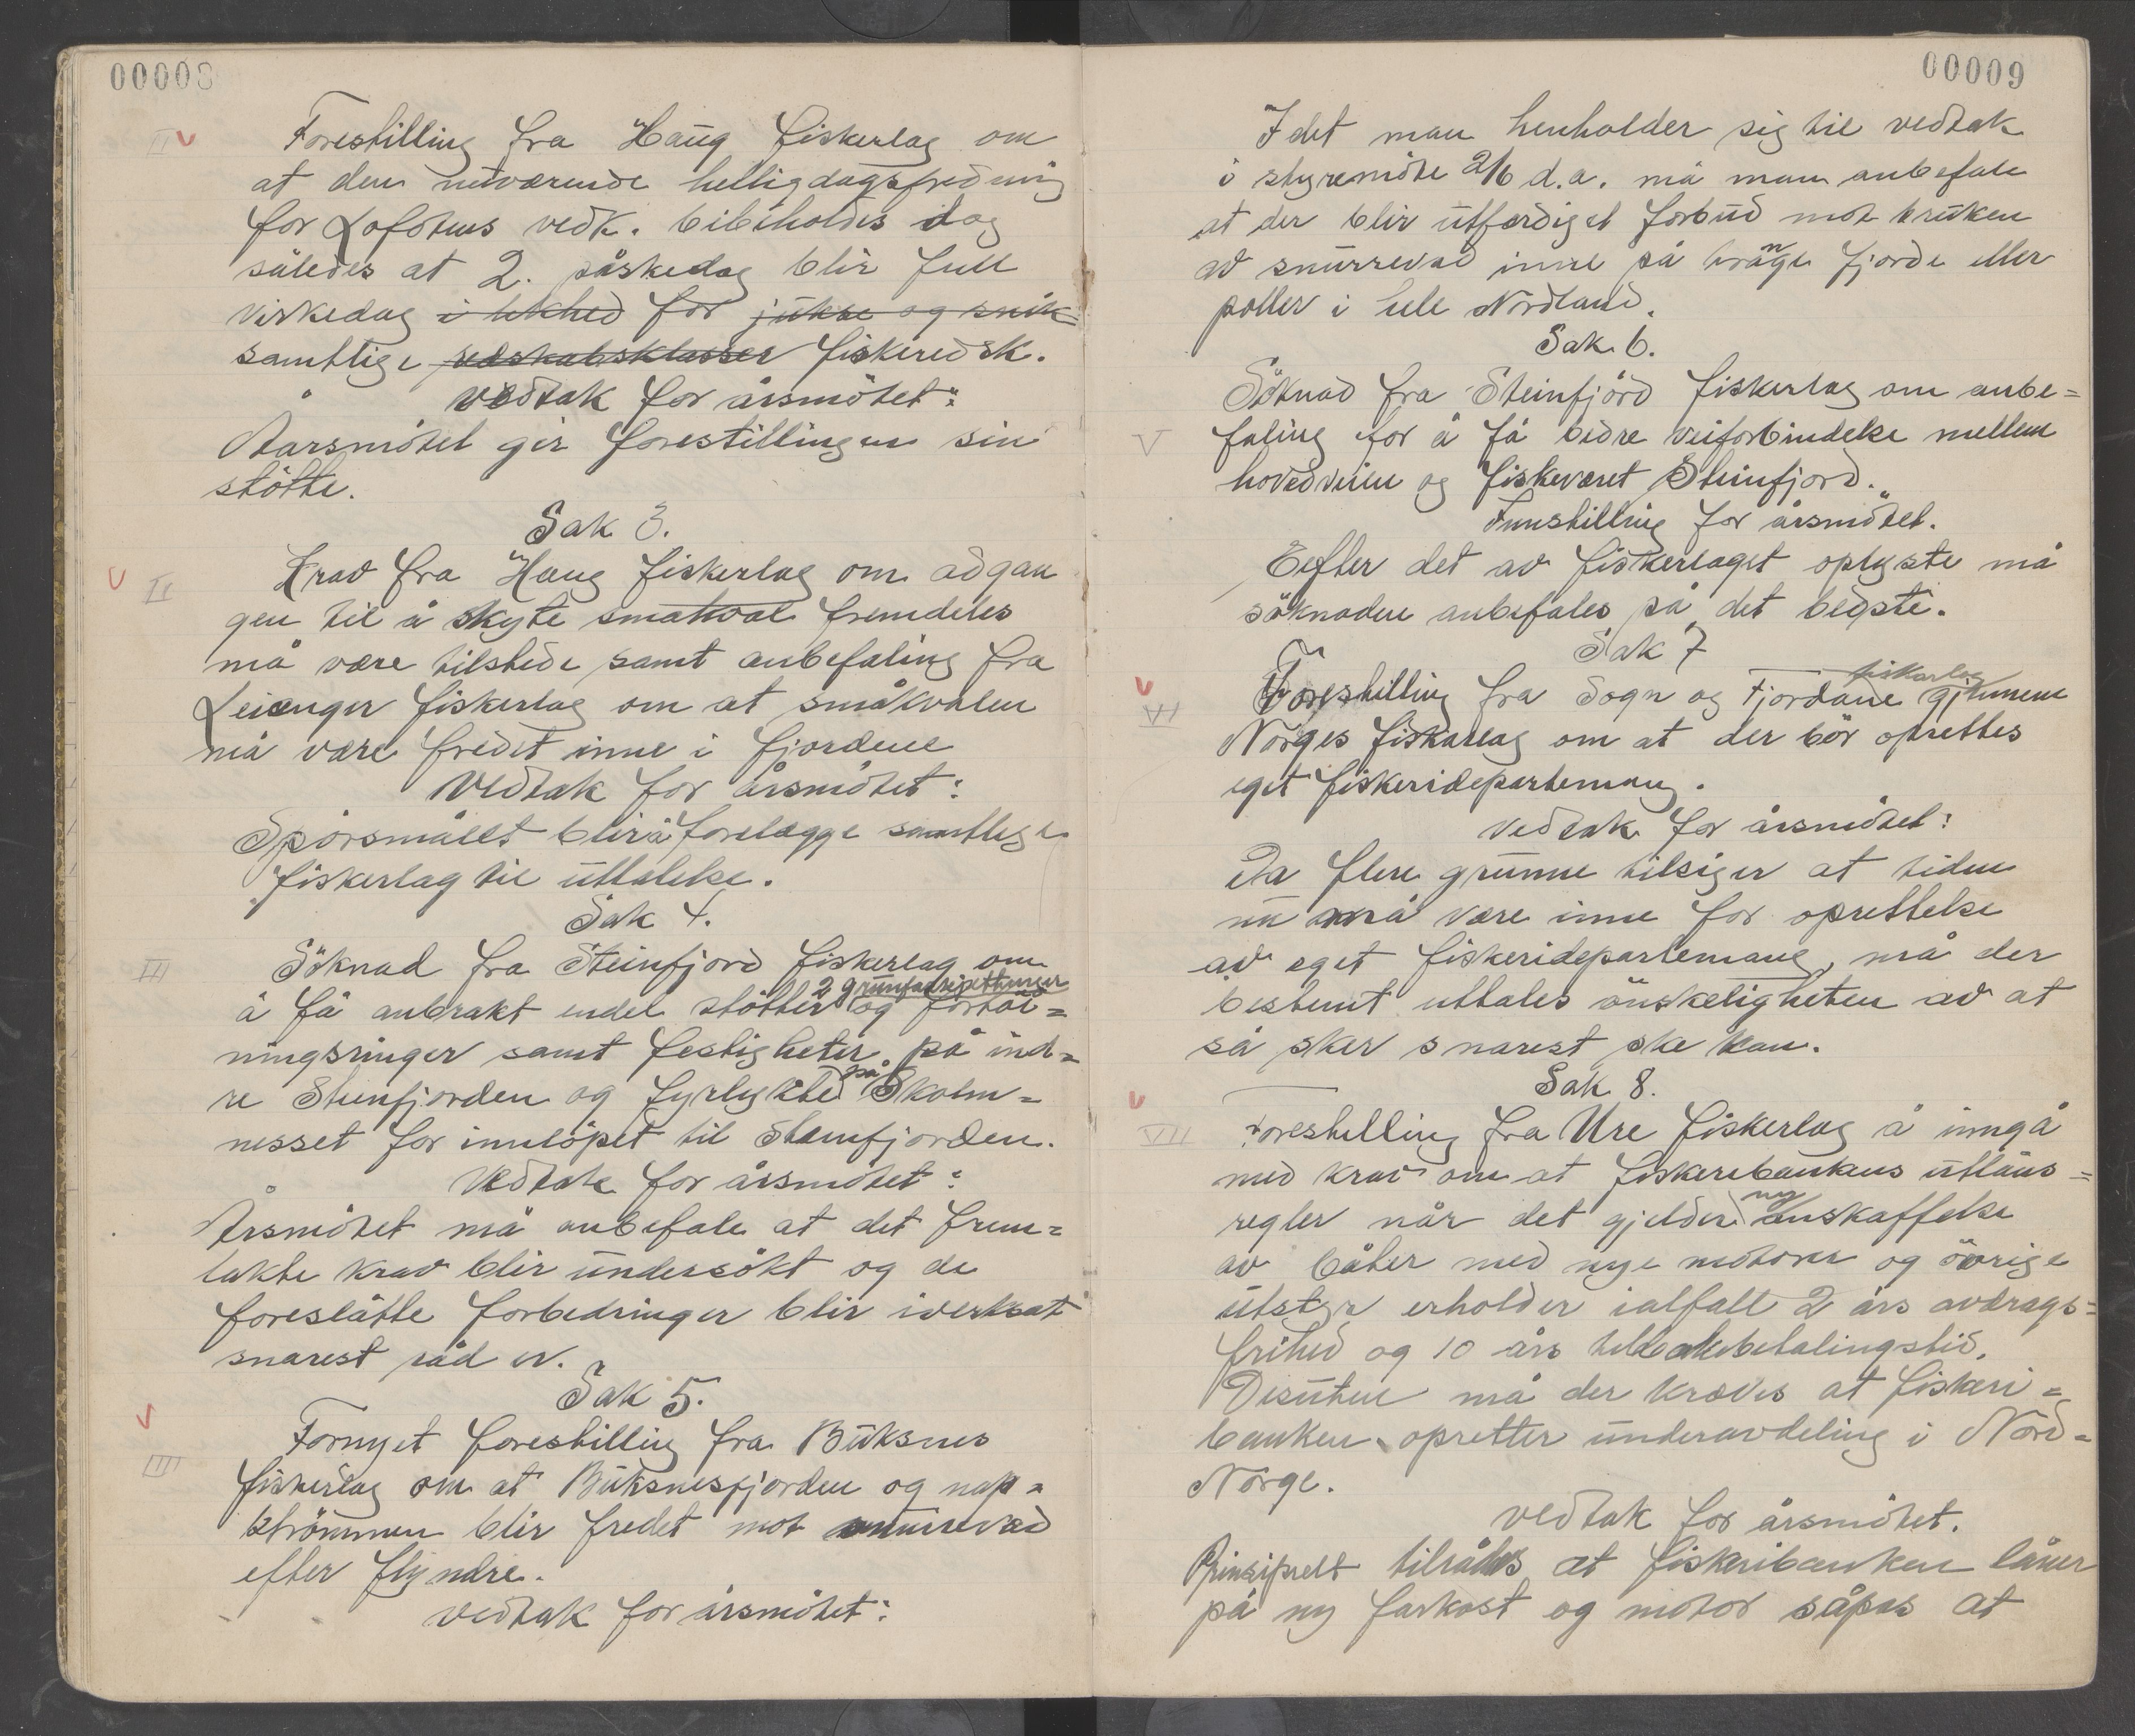 00008
II V
Forestilling fra Haug fiskerlag om
at den nuværende helligdagsfredning
for Lofotens vedk. bibeholdes dog
således at 2. påskedag blir full
virkedag i likhed for jukse og snik=
samtlige redskabsklasser fiskeredsk.
Vedtak for årsmötet:
Aarsmötet gir forestillingen sin
stötte.
Sak 3.
V II
Krav fra Haug fiskerlag om adgan
gen til å skyte småhval fremdeles
må være tilstede samt anbefaling fra
Leianger fiskerlag om at småkvalen
må være fredet inne i fjordene
Vedtak for årsmötet:
Spörsmålet blir å forelægge samtlige
fiskerlag til uttalelse.
Sak 4.
III
Söknad fra Steinfjord fiskerlag om
2
å få anbrakt endel stötter og fortöi=
ningsringer samt festigheter på ind=
på
re Steinfjorden og fyrlykte Skolm=
nesset for innlöpet til Steinfjorden.
Vedtak for årsmötet:
Årsmötet må anbefale at det frem=
lakte krav blir undersökt og de
foreslåtte forbedringer blir iverksat
snarest råd er.
Sak 5.
V IIII
Fornyet forestilling fra Buksnes
fiskerlag om at Buksnesfjorden og nap=
strömmen blir fredet mot snurrevad
efter flyndre.
Vedtak for årsmötet:
00009
I det man henholder sig til vedtak
i styremöte 2/6 d.a. må man anbefale
at der blir utfærdiget forbud mot bruken
av snurrevad inne på trånge fjorde eller
poller i hele Nordland.
Sak 6.
V
Söknad fra Steinfjord fiskerlag om anbe=
faling for å få bedre veiforbindelse mellem
hovedveien og fiskeværet Steinfjord.
Innstilling for årsmötet.
Eefter det av fiskerlaget oplyste må
söknaden anbefales på det bedste.
Sak 7
V VI
fiskarlag
Forestilling fra Sogn og Fjordane gjennem
Norges fiskarlag om at der bör oprettes
eget fiskeridepartemang.
Vedtak for årsmötet:
Da flere grunne tilsiger at tiden
nu må være inne for oprettelse
av eget fiskeridepartemang, må der
bestemt uttales önskeligheten av at
så sker snarest ske kan.
Sak 8.
V VII
Forestilling fra Ure fiskerlag å inngå
med krav om at fiskeribankens utlåns=
ny
regler når det gjelder anskaffelse
av båter med nye motorer og övrige
utstyr erholder ialfall 2 års avdrags=
frihed og 10 års tilbakebetalingstid.
Desuten må der kræves at fiskeri=
banken opretter underavdeling i Nord=
Norge.
Vedtak for årsmötet.
Prinsipielt tilrådes at fiskeribanken låner
på ny farkost og motor såpas at